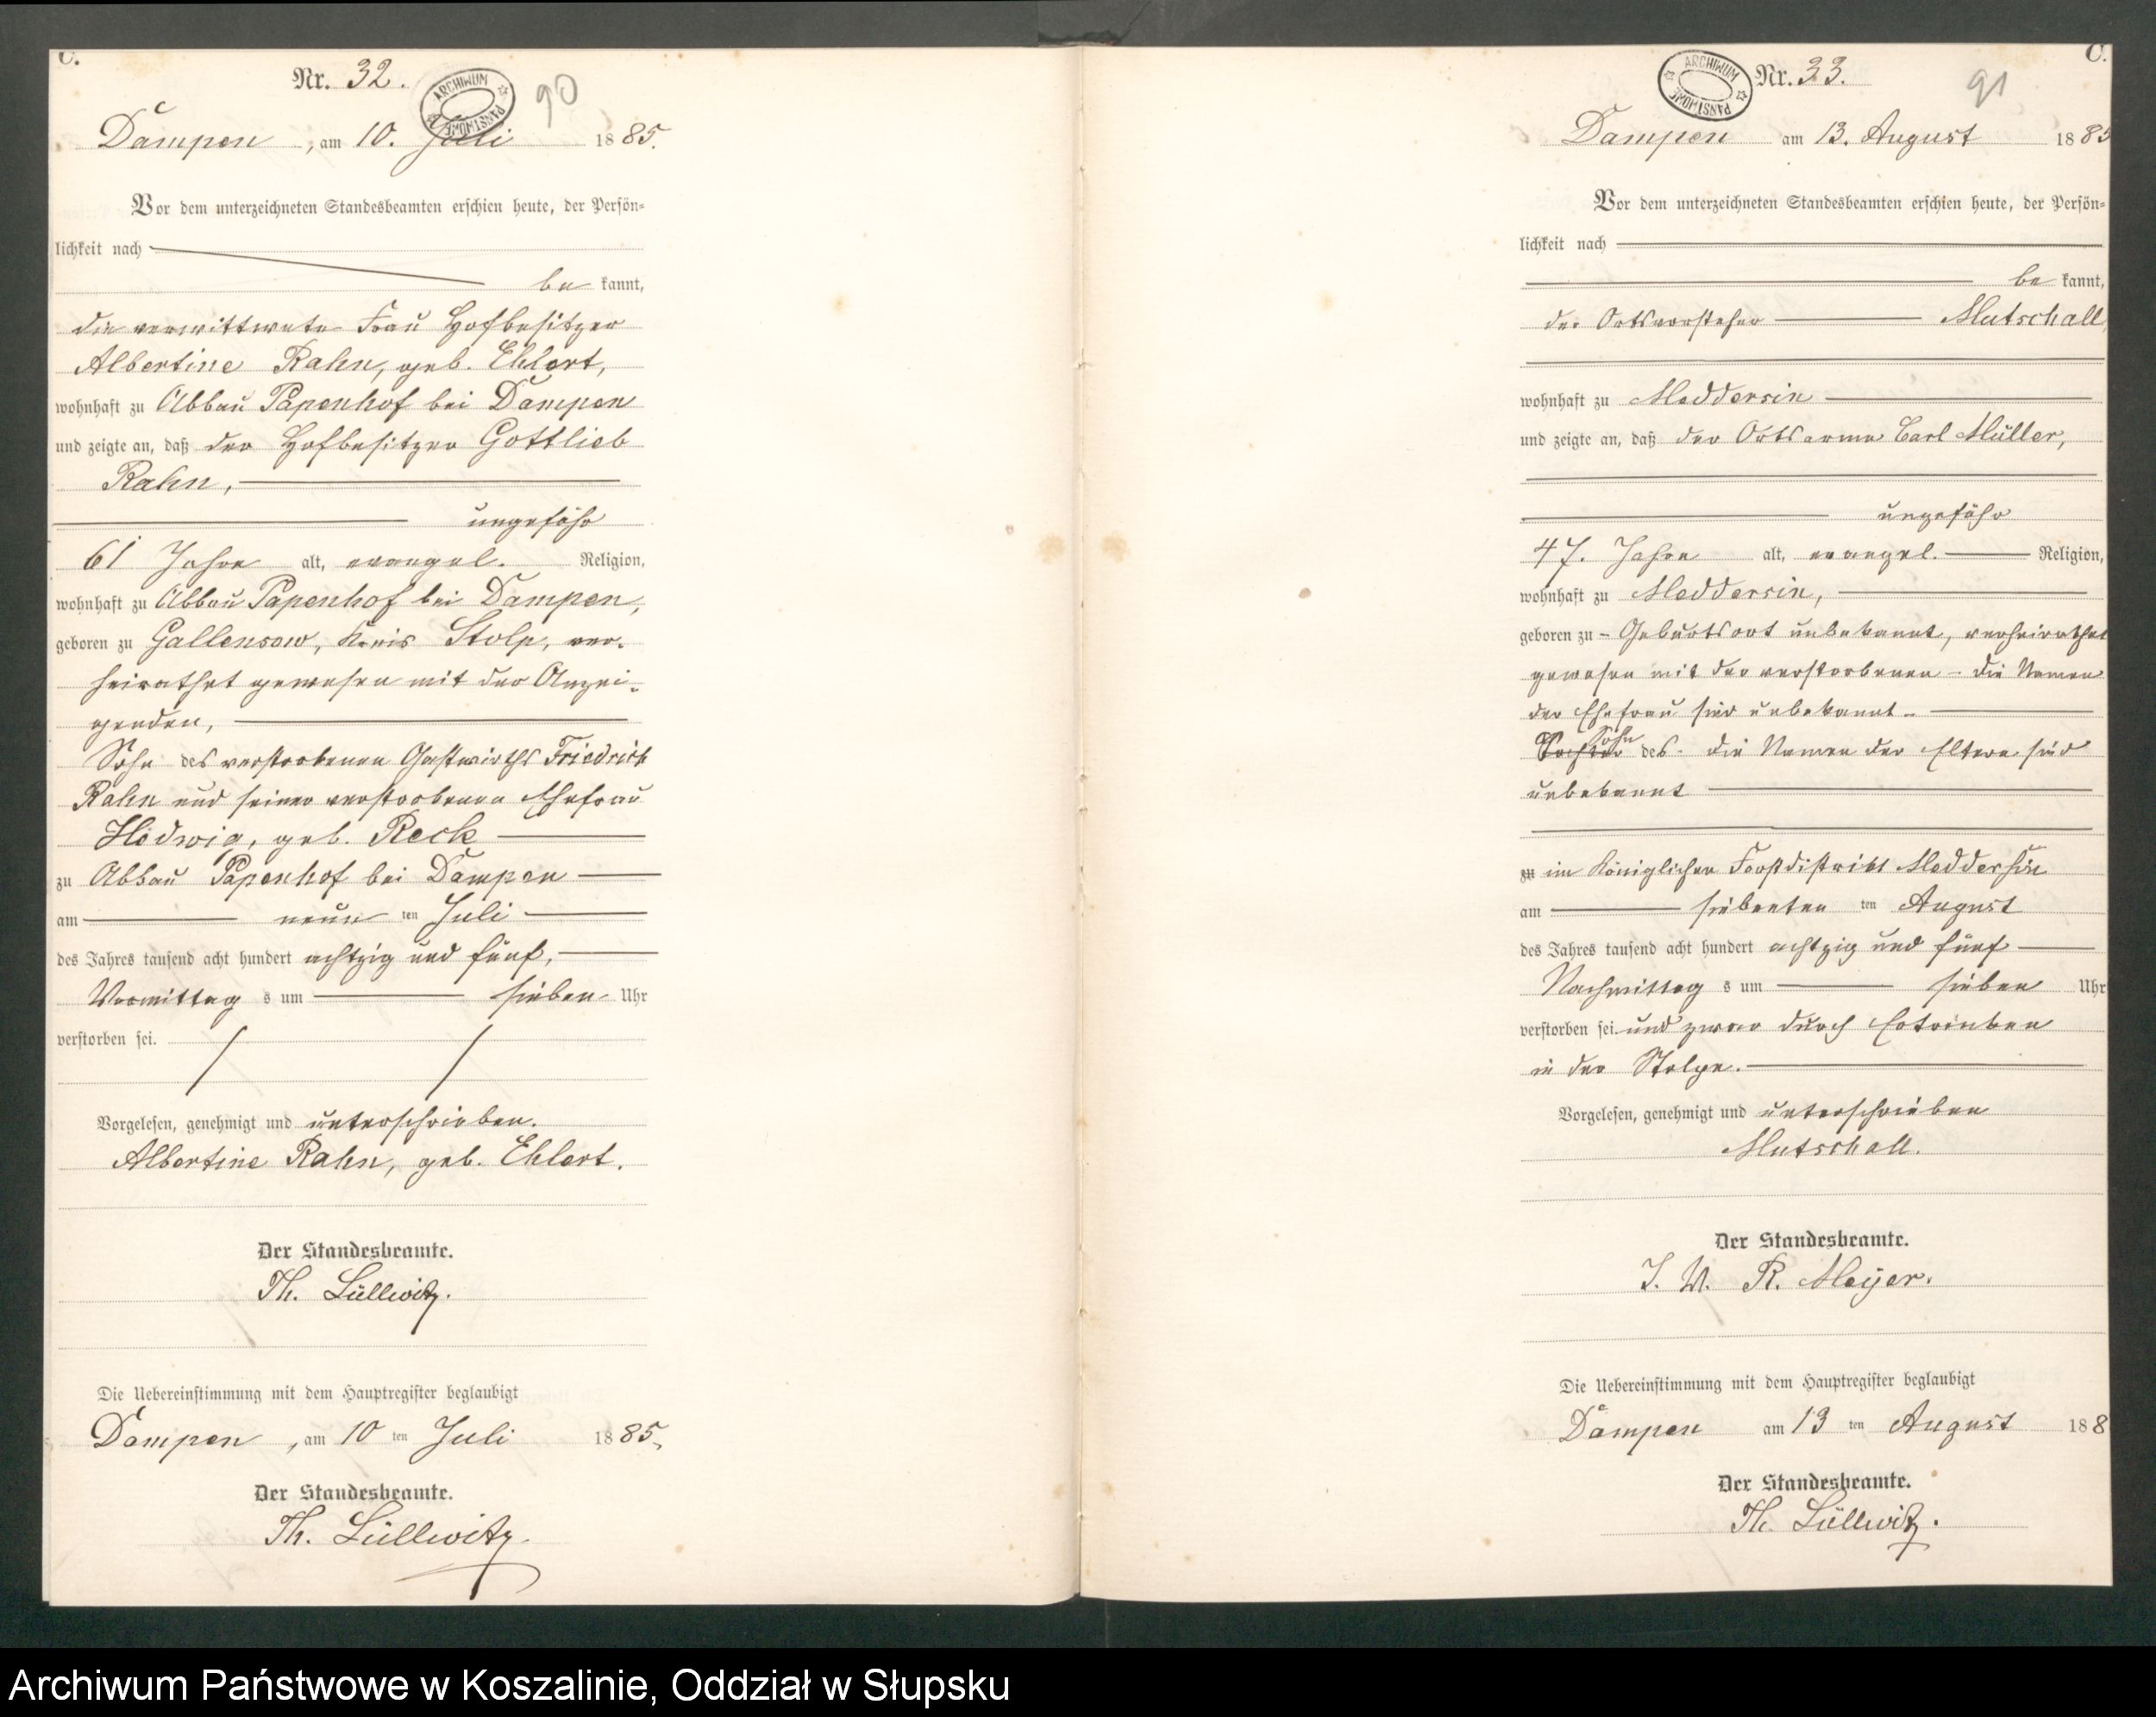 C.
Nr. 32.
ARCHIWUM PAŃSTWOWE
90
Dampen, am 10. Juli 1885.
Vor dem unterzeichneten Standesbeamten erschien heute, der Persön-
lichkeit nach
be kannt,
die verwittwete Frau Hofbesitzer
Albertine Rahn, geb. Ehlert,
wohnhaft zu Abbau Papenhof bei Dampen
und zeigte an, daß der Hofbesitzer Gottlieb
Rahn,
ungefähr
61 Jahre alt, evangel. Religion,
wohnhaft zu Abbau Papenhof bei Dampen,
geboren zu Gallensow, Kreis Stolp, ver-
heirathet gewesen mit der Anzei-
genden,
Sohn des verstorbenen Gastwirths Friedrich
Rahn und seiner verstorbenen Ehefrau
Hedwig, geb. Reck
zu Abbau Papenhof bei Dampen
am neun ten Juli
des Jahres tausend acht hundert achtzig und fünf,
Vormittag s um sieben Uhr
verstorben sei.
Vorgelesen, genehmigt und unterschrieben.
Albertine Rahn, geb. Ehlert.
Der Standesbeamte.
Th. Lüllwitz.
Die Uebereinstimmung mit dem Hauptregister beglaubigt
Dampen, am 10 ten Juli 1885.
Der Standesbeamte.
Th. Lüllwitz.
C.
Nr. 33.
ARCHIWUM PAŃSTWOWE
91
Dampen am 13. August 1885
Vor dem unterzeichneten Standesbeamten erschien heute, der Persön-
lichkeit nach
be kannt,
der Ortsvorsteher Mutschall,
wohnhaft zu Meddersin
und zeigte an, daß der Ortsarme Carl Müller,
ungefähr
47. Jahre alt, evangel. Religion,
wohnhaft zu Meddersin,
geboren zu - Geburtsort unbekannt, verheirathet
gewesen mit der verstorbenen - die Namen
der Ehefrau sind unbekannt -
Sohn
Tochter des - die Namen der Eltern sind
unbekannt
zu im Königlichen Forstdistrikt Meddersin
am siebenten ten August
des Jahres tausend acht hundert achtzig und fünf
Nachmittag s um sieben Uhr
verstorben sei und zwar durch Ertrinken
in der Stolpe.
Vorgelesen, genehmigt und unterschrieben
Mutschall.
Der Standesbeamte.
I. V. R. Meyer.
Die Uebereinstimmung mit dem Hauptregister beglaubigt
Dampen am 13 ten August 188
Der Standesbeamte.
Th. Lüllwitz.
Archiwum Państwowe w Koszalinie, Oddział w Słupsku